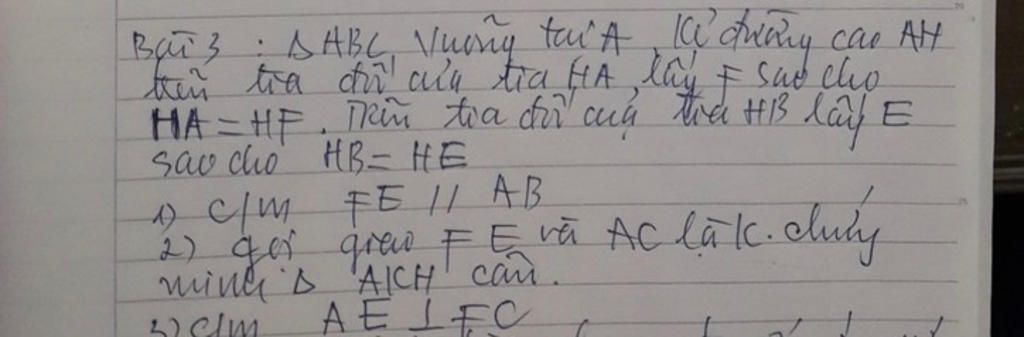 Bài 3 : Δ ABC vuông tại A, Kẻ đường cao AH
trên tia đối của tia HA lấy F sao cho
HA = HF. Trên tia đối của tia HB lấy E
sao cho HB = HE
1) C/m FE // AB
2) gọi giao FE và AC là K. chứng
minh Δ AKH cân.
3) C/m AE ⊥ FC